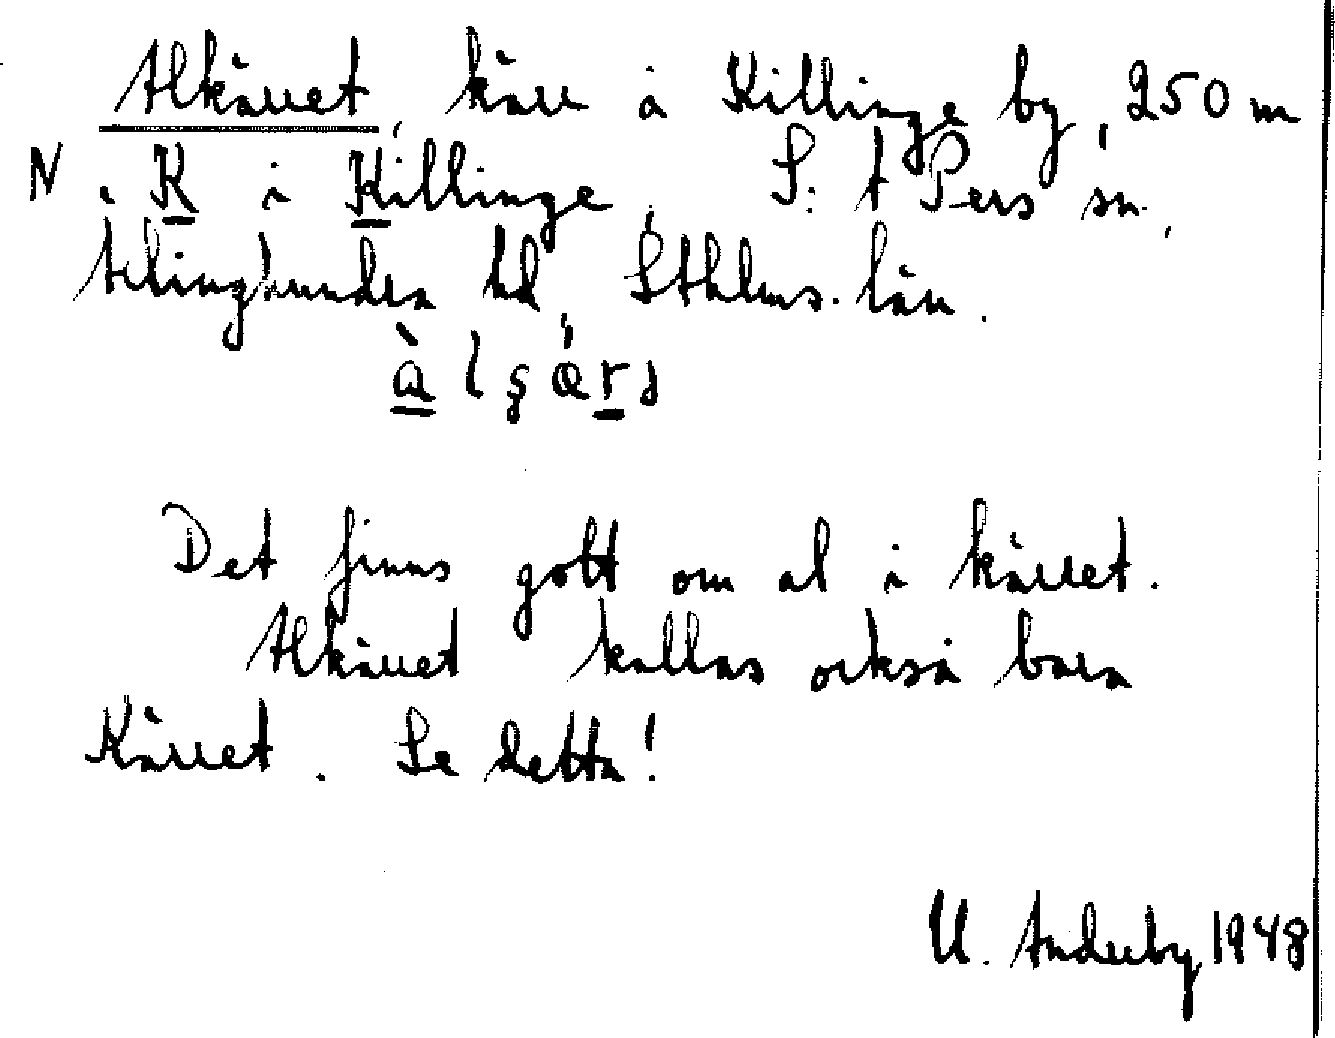 Alkärret, kärr å Killinge by, 250 m
N. K i Killinge, S:t Pers sn,
Ärlinghundra hd, Sthlms. län.
à l g ä́ r ı
Det finns gott om al i kärret.
Alkärret kallas också bara
Kärret. Se detta!
U. Anderby 1948